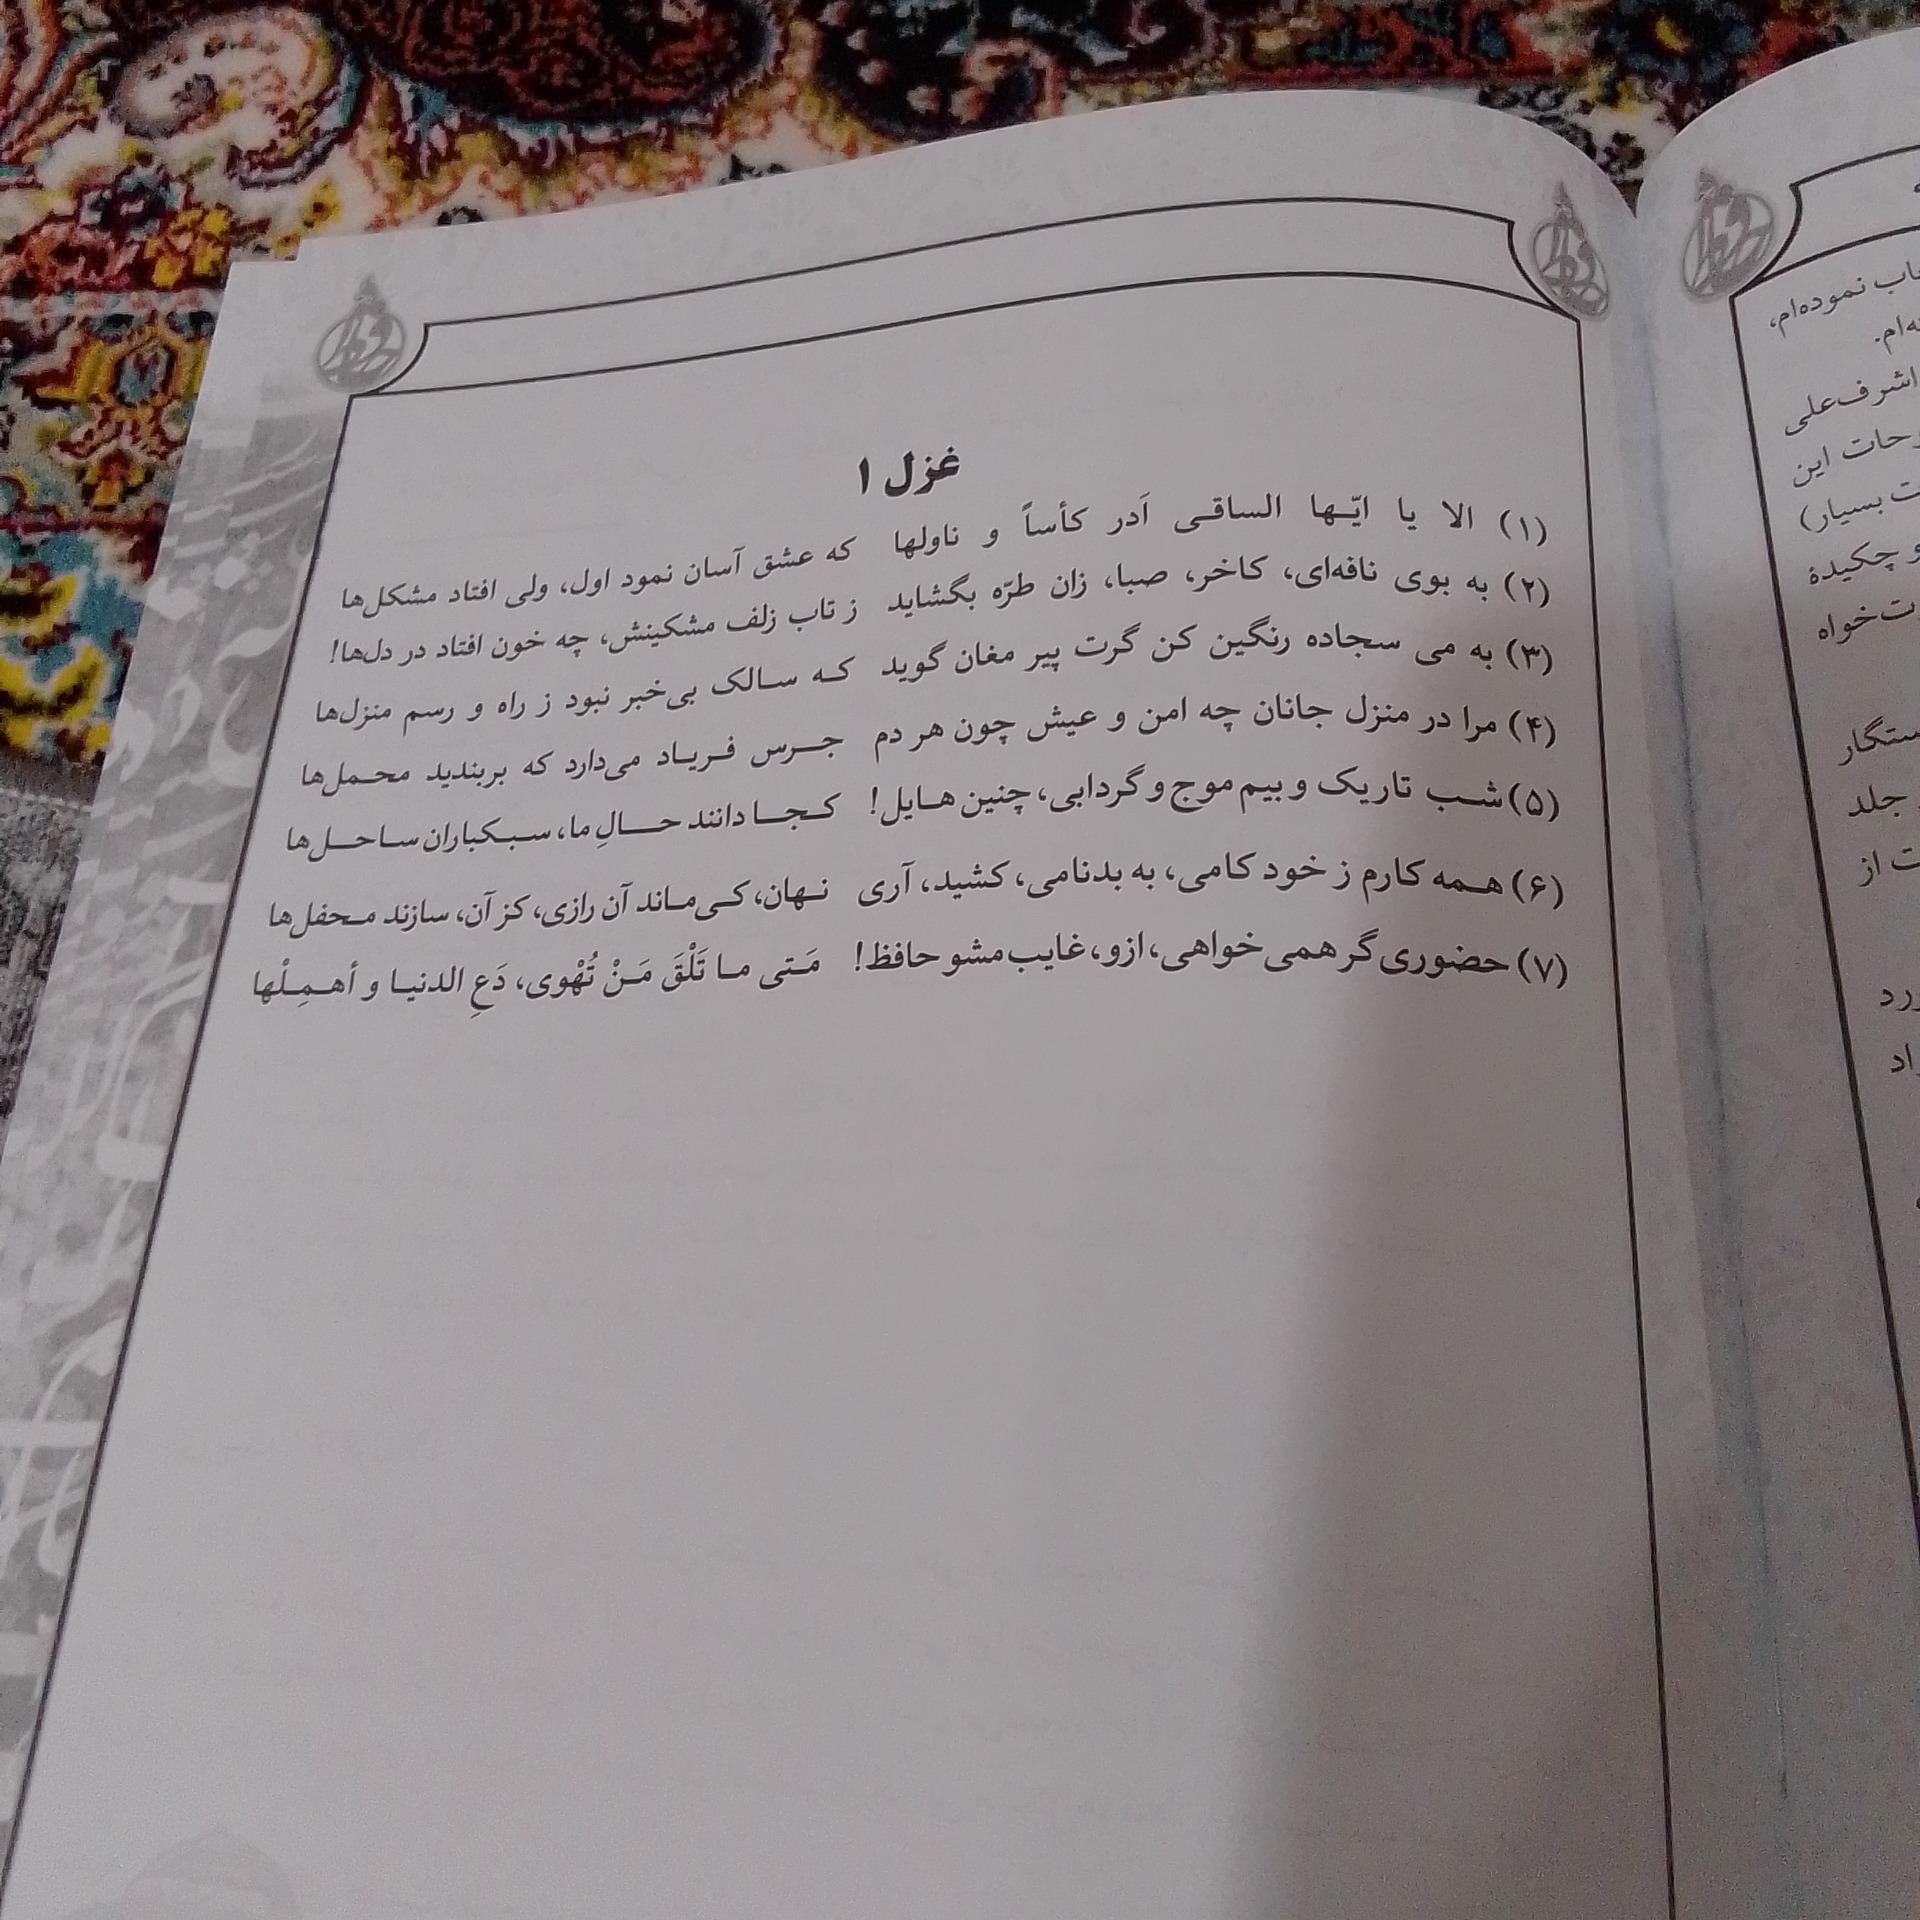 غزل ۱
(۱) الا یا ایّها الساقی اَدر کأساً و ناولها که عشق آسان نمود اول، ولی افتاد مشکل‌ها
(۲) به بوی نافه‌ای، کاخر، صبا، زان طرّه بگشاید ز تاب زلف مشکینش، چه خون افتاد در دل‌ها!
(۳) به می سجاده رنگین کن گرت پیر مغان گوید که سالک بی‌خبر نبود ز راه و رسم منزل‌ها
(۴) مرا در منزل جانان چه امن و عیش چون هر دم جرس فریاد می‌دارد که بربندید محمل‌ها
(۵) شب تاریک و بیم موج و گردابی، چنین هایل! کجا دانند حالِ ما، سبکباران ساحل‌ها
(۶) همه کارم ز خود کامی، به بدنامی، کشید، آری نهان، کی‌ماند آن رازی، کز آن، سازند محفل‌ها
(۷) حضوری گر همی خواهی، ازو، غایب مشو حافظ! مَتی ما تَلْقَ مَنْ تُهْوی، دَعِ الدنیا و أهمِلْها
نموده‌ام،
اشرف‌علی
این
بسیار)
و چکیدهٔ
خواه
جلد
از